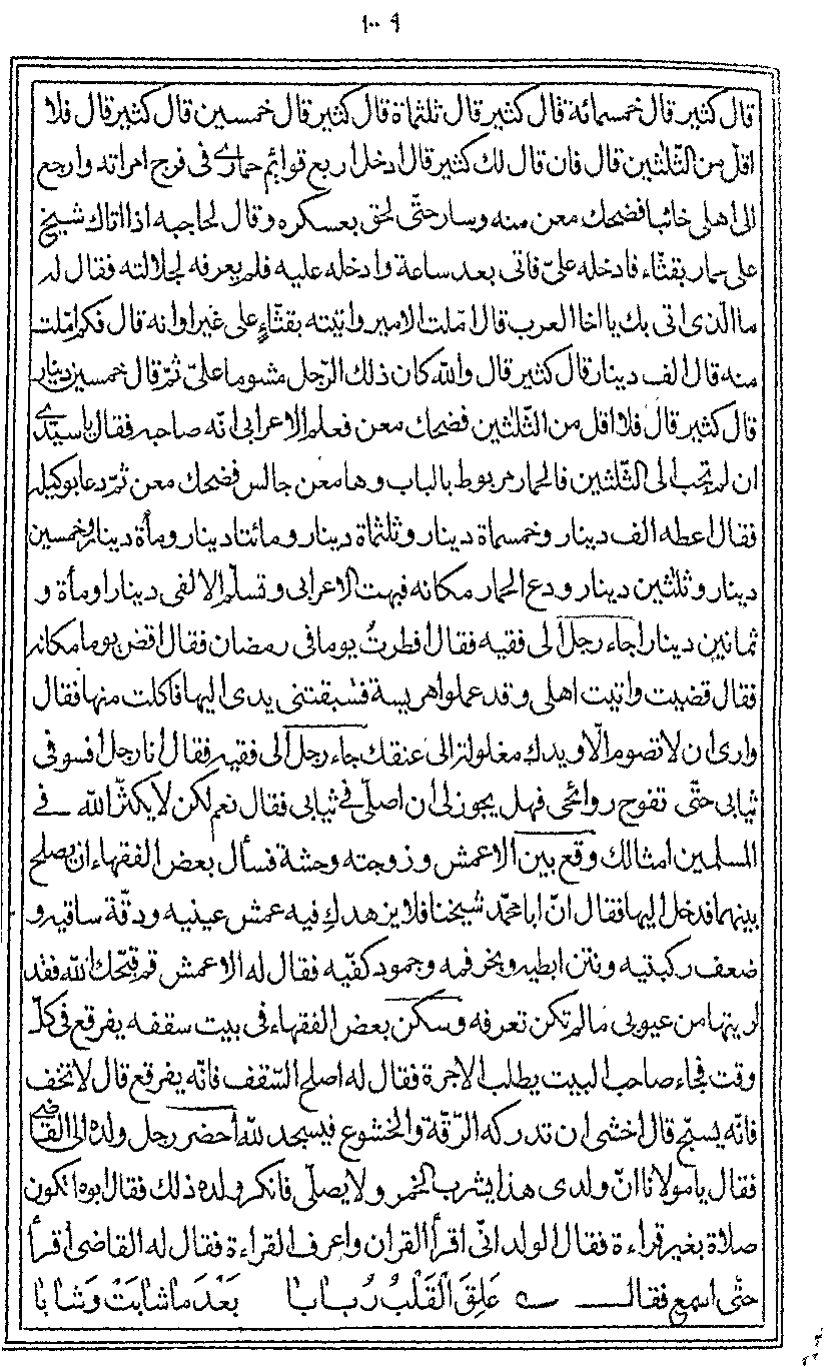 ١٠٠٩
قال كثير قال خمسمائة قال كثير قال ثلثماة قال كثير قال خمسين قال كثير قال فلا
اقل من الثّلثين قال فان قال لك كثير قال ادخل اربع قوائم حمارى فى فرج امراته وارجع
الى اهلى خائبا فضحك معن منه وسار حتّى لحق بعسكره وقال لحاجبه اذا اتاك شيخ
على حمار بقثّاء فادخله علىّ فاتى بعد ساعة وادخله عليه فلم يعرفه لجلالته فقال له
ما الّذى اتى بك يا اخا العرب قال امّلت الامير واتيته بقثّاءٍ على غير اوانه قال فكم امّلت
منه قال الف دينار قال كثير قال واللّه كان ذلك الرّجل مشوما علىّ ثمّ قال خمسين دينار
قال كثير قال فلا اقل من الثّلثين فضحك معن فعلم الاعرابى انّه صاحبه فقال يا سيّدى
ان لم تجب الى الثّلثين فالحمار مربوط بالباب وها معن جالس فضحك معن ثمّ دعا بوكيله
فقال اعطه الف دينار وخمسماة دينار وثلثماة دينار ومائتا دينار ومأة دينار وخمسين
دينار وثلثين دينار ودع الحمار مكانه فبهت الاعرابى وتسلّم الالفى دينار اومأة و
ثمانين دينارا جاء رجل الى فقيه فقال افطرتُ يوما فى رمضان فقال اقض يوما مكانه
فقال قضيت واتيت اهلى وقد عملوا هريسة فسبقتنى يدى اليها فاكلت منها فقال
وارى ان لا تصوم الّا ويدك مغلولة الى عنقك جاء رجل الى فقيه فقال انا رجل افسو فى
ثيابى حتّى تفوح روائحى فهل يجوز لى ان اصلّى فى ثيابى فقال نعم لكن لا يكثّر اللّه فى
المسلمين امثالك وقع بين الاعمش وزوجته وحشة فسأل بعض الفقهاء ان يصلح
بينهما فدخل اليها فقال انّ ابا محمّد شيخنا فلا يزهدك فيه عمش عينيه ودقّة ساقيه و
ضعف ركبتيه ونتن ابطيه وبخر فمه وجمود كفّيه فقال له الاعمش قم قبّحك اللّه فقد
اريتها من عيوبى ما لم تكن تعرفه وسكن بعض الفقهاء فى بيت سقفه يفرقع فى كلّ
وقت فجاء صاحب البيت يطلب الاجرة فقال له اصلح السّقف فانّه يفرقع قال لا تخف
فانّه يسبّح قال اخشى ان تدركه الرّقة والخشوع فيسجد للّه احضر رجل ولده الى القاضى
فقال يا مولانا انّ ولدى هذا يشرب الخمر ولا يصلّى فانكر ولده ذلك فقال ابوه اتكون
صلاة بغير قراءة فقال الولد انّى اقرأ القران واعرف القراءة فقال له القاضى اقرأ
حتّى اسمع فقال عَلِقَ الْقَلْبُ رُبابا بَعْدَ ما شابَتْ وَشابا